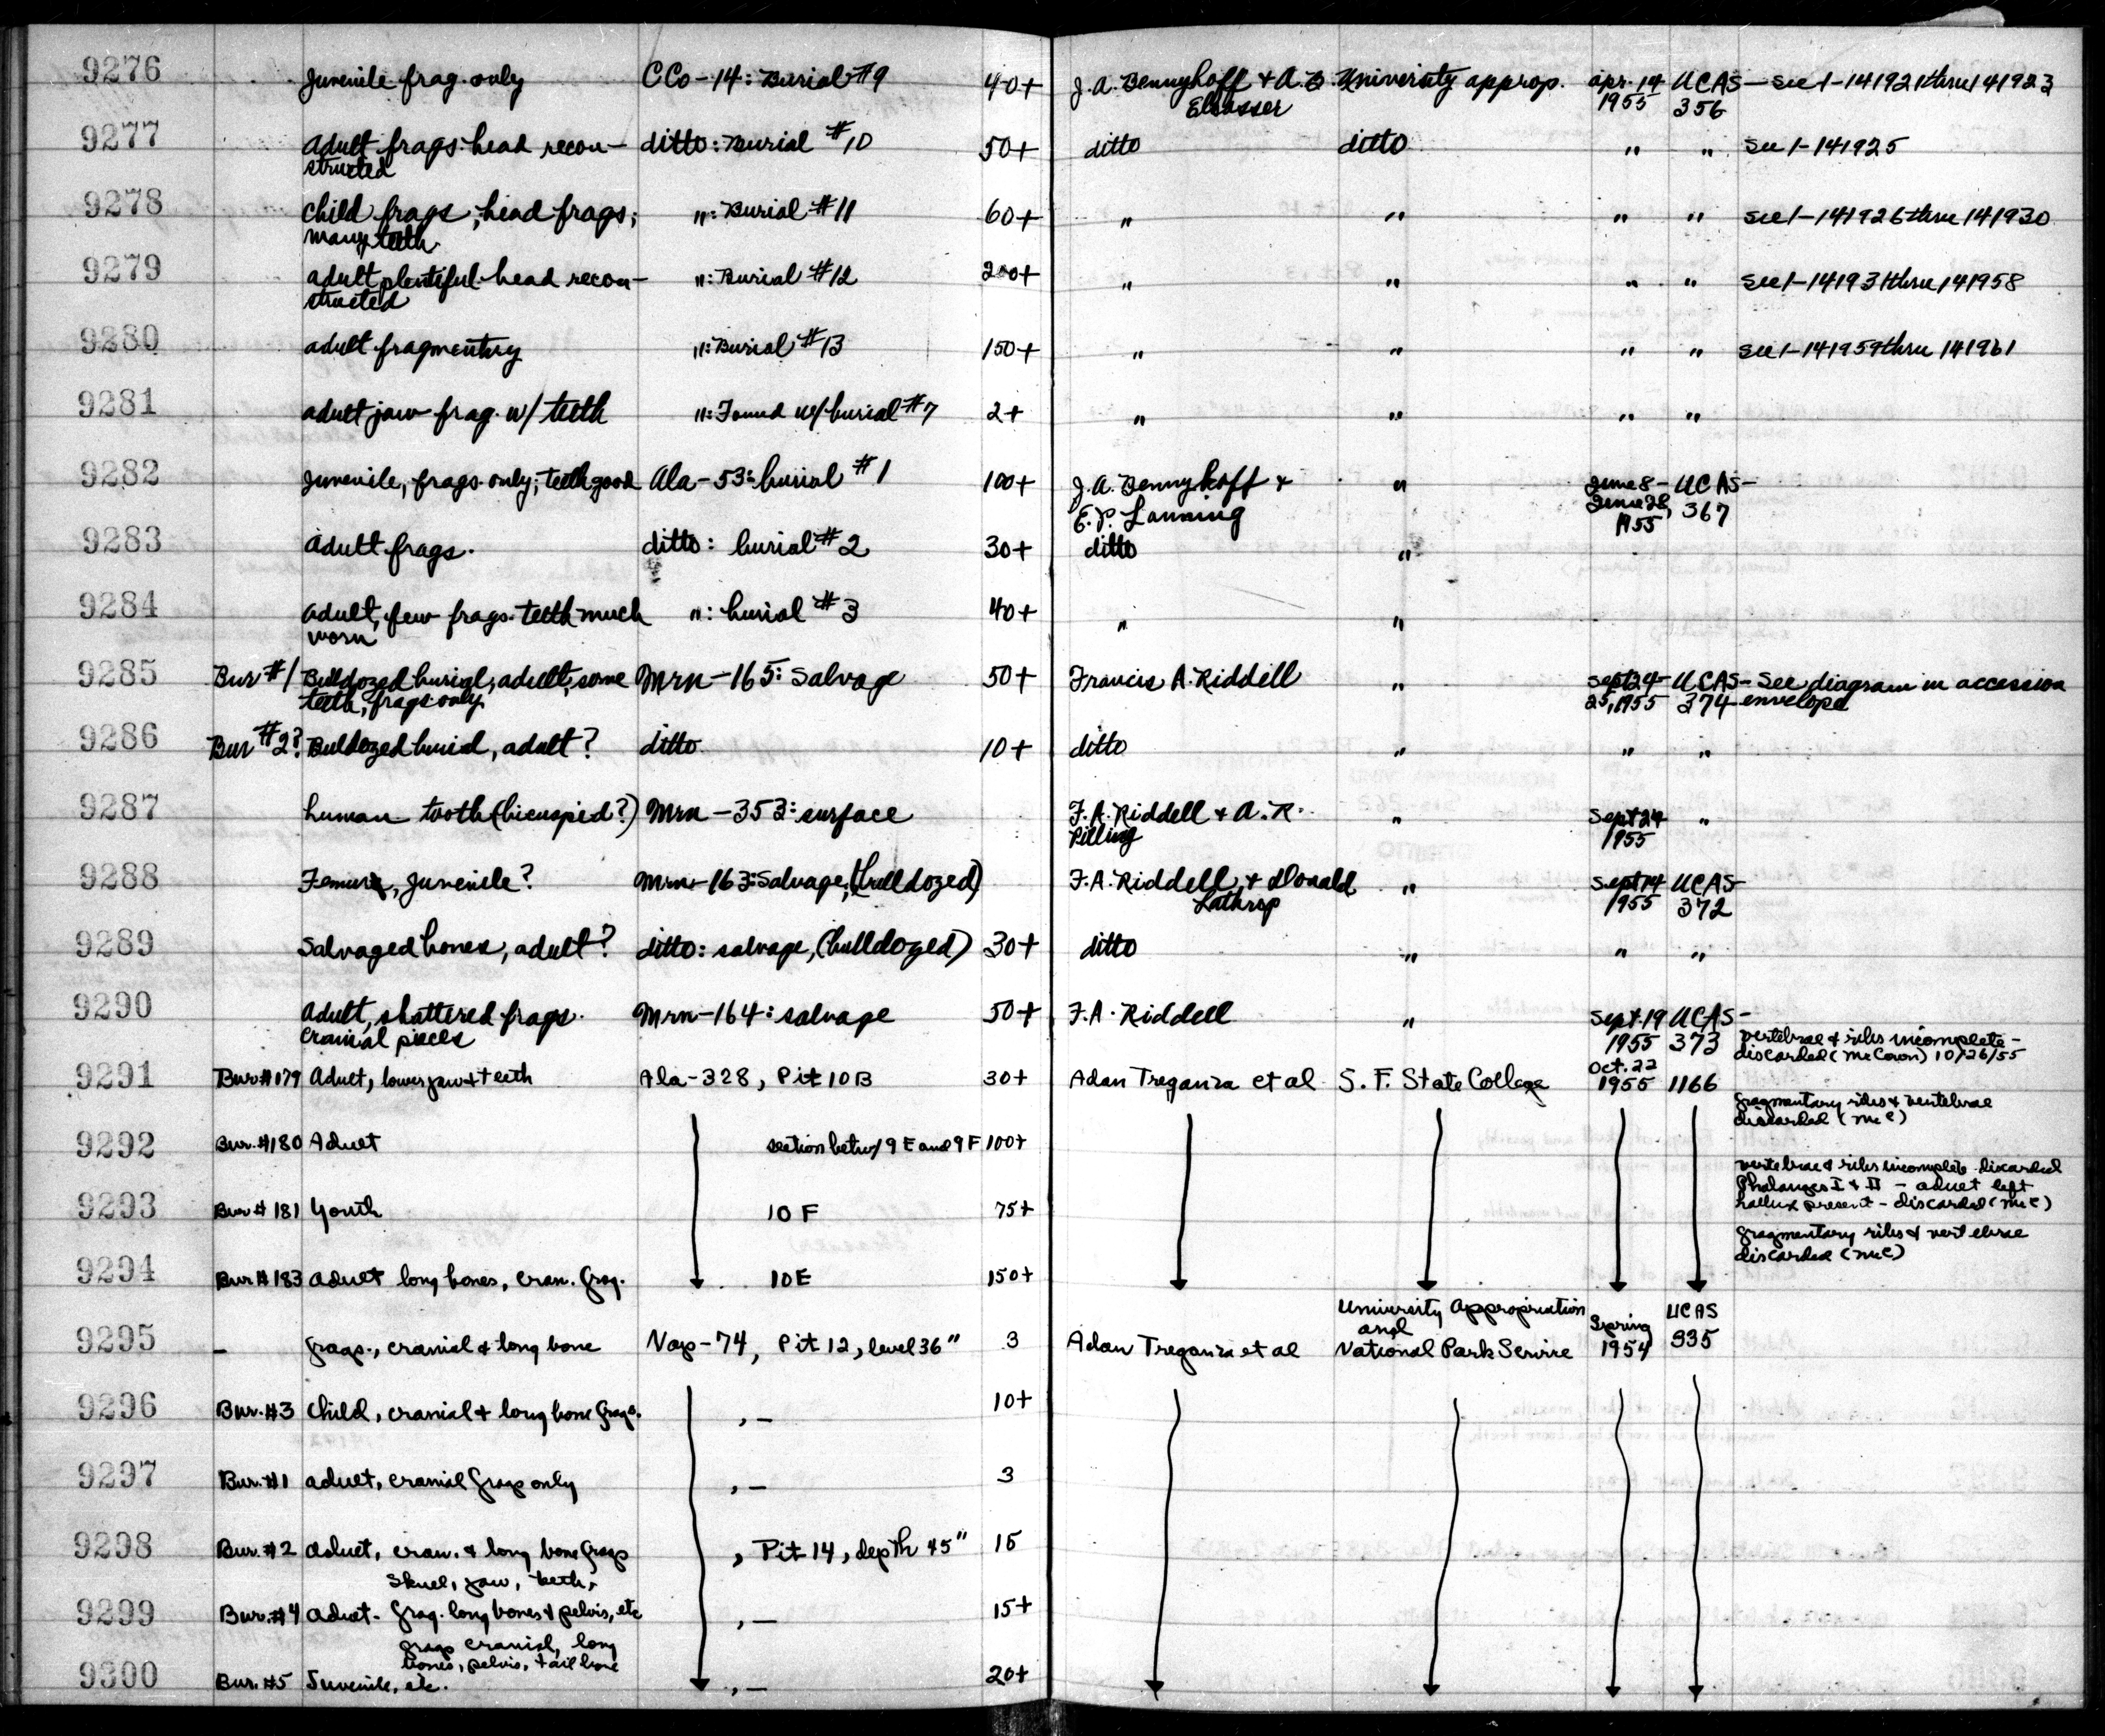 9276 Juvenile frag. only CCo-14: Burial #9 40+ J.A. Bennyhoff & A.B. Elsasser University approp. Apr. 14 1955 UCAS-356 see 1-141921 thru 141923
9277 Adult frags. head recon-structed ditto: Burial #10 50+ ditto ditto " " see 1-141925
9278 Child frags; head frags; many teeth. ": Burial #11 60+ " " " " see 1-141926 thru 141930
9279 adult plentiful. head recon-structed ": Burial #12 200+ " " " " see 1-141931 thru 141958
9280 adult fragmentry ": Burial #13 150+ " " " " see 1-141959 thru 141961
9281 adult jaw frag. w/ teeth ": Found w/ burial #7 2+ " " " "
9282 Juvenile, frags. only; teeth good Ala-53: burial #1 100+ J.A. Bennyhoff & E.P. Lanning " June 8-June 28, 1955 UCAS-367
9283 Adult frags. ditto: burial #2 30+ ditto "
9284 Adult, few frags. teeth much worn ": burial #3 40+ " "
9285 Bur #1 Bulldozed burial, adult, some teeth, frags only. Mrn-165: Salvage 50+ Francis A. Riddell " Sept 24-25, 1955 UCAS-374 See diagram in accession envelope
9286 Bur #2? Buldozed burial, adult? ditto 10+ ditto " " "
9287 human tooth (bicuspid?) Mrn-353: surface F.A. Riddell & A.R. Pilling " Sept 24 1955 "
9288 Femur, Juvenile? Mrn-163: Salvage, (bulldozed) F.A. Riddell, & Donald Lathrap " Sept 14 1955 UCAS-372
9289 Salvaged bones, adult? ditto: salvage, (bulldozed) 30+ ditto " " "
9290 Adult, shattered frags. cranial pieces Mrn-164: salvage 50+ F.A. Riddell " Sept. 19 1955 UCAS-373
9291 Bur #179 Adult, lower jaw & teeth Ala-328, Pit 10B 30+ Adan Treganza et al S. F. State College Oct. 22 1955 1166 vertebrae & ribs incomplete - discarded (McCown) 10/26/55
9292 Bur. #180 Adult section betw/ 9E and 9F 100+ fragmentary ribs & vertebrae discarded (McC)
9293 Bur # 181 Youth 10 F 75+ vertebrae & ribs incomplete discarded Phalanges I & II - adult left hallux present - discarded (McC)
9294 Bur # 183 Adult long bones, cran. frag. 10E 150+ fragmentary ribs & vertebrae discarded (McC)
9295 - frags., cranial & long bone Nap-74, Pit 12, level 36" 3 Adan Treganza et al University Appropriation and National Park Service Spring 1954 UCAS 335
9296 Bur. #3 Child, cranial & long bone frags. , - 10+
9297 Bur. #1 adult, cranial frags only , - 3
9298 Bur. #2 adult, cran. & long bone frags , Pit 14, depth 45" 15
9299 Bur. #4 adult - skull, jaw, teeth, frag. long bones & pelvis, etc , - 15+
9300 Bur. #5 Juvenile, frags cranial, long bones, pelvis, tail bone etc. , - 20+